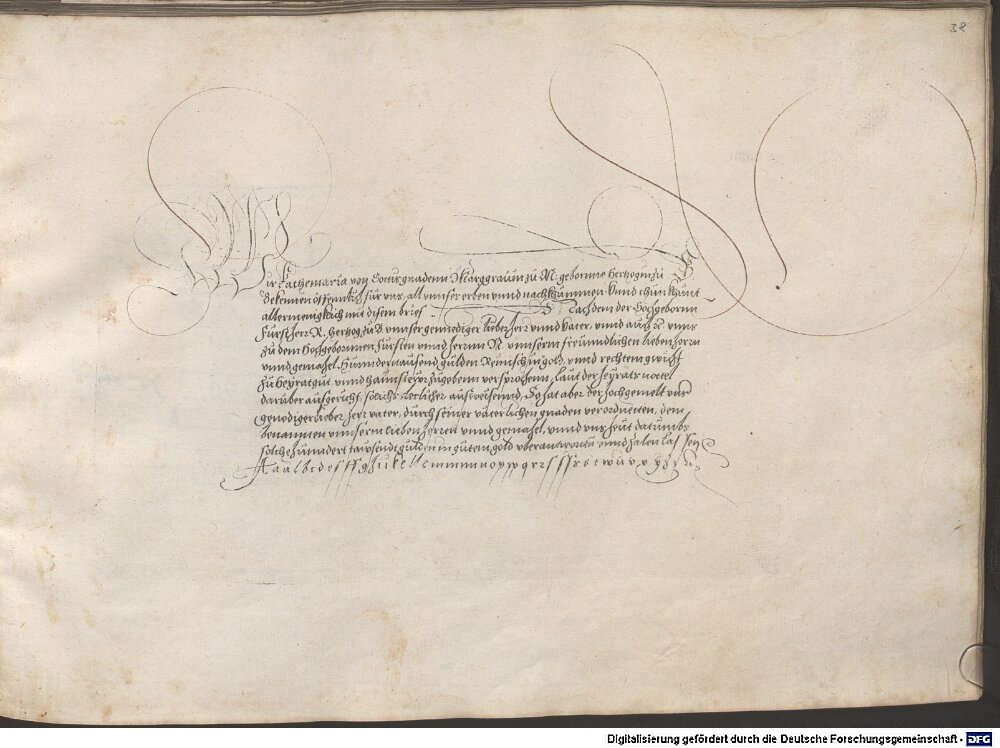 38
Wir Kathemaria von Gottes gnaden Marggravin zu N: geborne Hertzogin zu N
Bekennen offennlich für uns, all unnser erben unnd nachkhummen Unnd thun khunt
allermenigklich mit disem brief. Nachdem der Hochgeborn
Fürst herr N. Hertzog zu N unnser genediger lieber herr unnd Vater, unnd auch uns
zu dem Hochgebornnen Fürsten unnd herrnn N. unnserm freundlichen lieben herrn
unnd gemahel, Hunnderttausend gulden Reinisch in gold, unnd rechtem gwicht
zu heyratgut unnd haimsteyr zugebenn versprochenn, laut der heyrats nottel
darüber aufgericht, solichs clerlicher ausweisennd, So hat aber der hochgemelt unser
genediger lieber herr vater, durch seiner väterlichen gnaden verordneten, dem
benannten unnserm lieben herren unnd gemahel, unnd uns heut datumbs
solche hunndert tausendt gulden in gutem gold überantworten unnd zelen lassen
A a a l b c d e f ff g h i u k l ll m m n n o p p q r s ff s s t w u v x y z
Digitalisierung gefördert durch die Deutsche Forschungsgemeinschaft - DFG